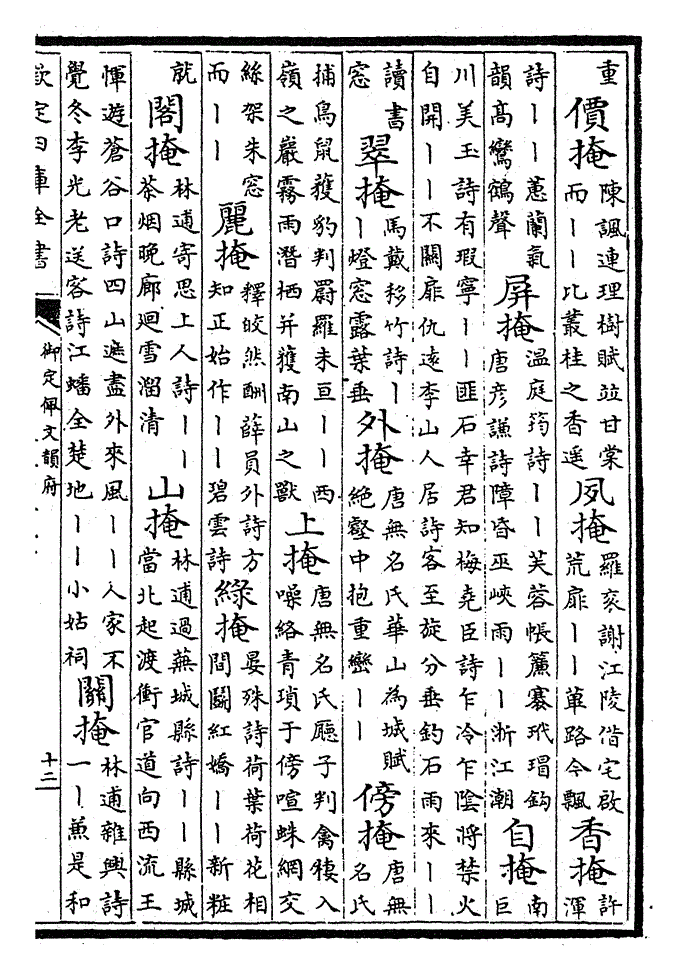 重價掩陳諷連理樹賦竝甘棠而丨丨比叢桂之香遥夙掩羅衮謝江陵借宅啟荒扉丨丨蓽路今飄香掩許渾
詩丨丨蕙蘭氣韻高鸞鶴聲屏掩溫庭筠詩丨丨芙蓉帳簾搴玳瑁鈎唐彦謙詩障昏巫峽雨丨丨浙江潮自掩南巨
川美玉詩有瑕寧丨丨匪石幸君知梅堯臣詩乍冷乍陰將禁火自開丨丨不關扉仇遠李山人居詩客至旋分垂釣石雨來丨丨
讀書窓翠掩馬戴移竹詩丨丨燈窓露葉垂外掩唐無名氏華山為城賦絶壑中抱重巒丨丨傍掩唐無名氏
捕鳥鼠獲豹判罻羅未亘丨丨西嶺之巖霧雨潛栖并獲南山之獸上掩唐無名氏廳子判禽棲入噪絡青瑣于傍喧蛛網交
絲架朱窓而丨丨麗掩釋皎然酬薛員外詩方知正始作丨丨碧雲詩綠掩晏殊詩荷葉荷花相間鬬紅嬌丨丨新粧
就閣掩林逋寄思上人詩丨丨茶烟晚廊迴雪溜清山掩林逋過蕪城縣詩丨丨縣城當北起渡衝官道向西流王
惲遊蒼谷口詩四山遮盡外來風丨丨人家不覺冬李光老送客詩江蟠全楚地丨丨小姑祠關掩林逋雜興詩一丨兼是和
欽定四庫全書
御定佩文韻府
十二